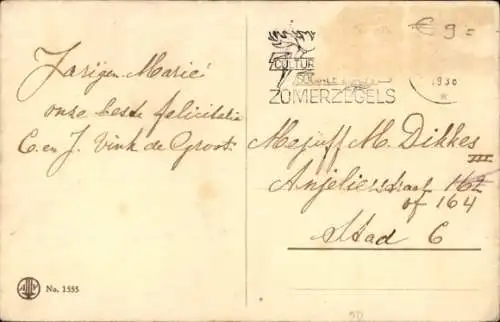 € 9=
CULTUR
ZOMERZEGELS
1936
Jarige Marie
onze beste felicitatie
C. en J. Vink de Groot
Mejuff M. Dikkes
III
Anjelierstraat 162
of 164
Stad C
No. 1555
50